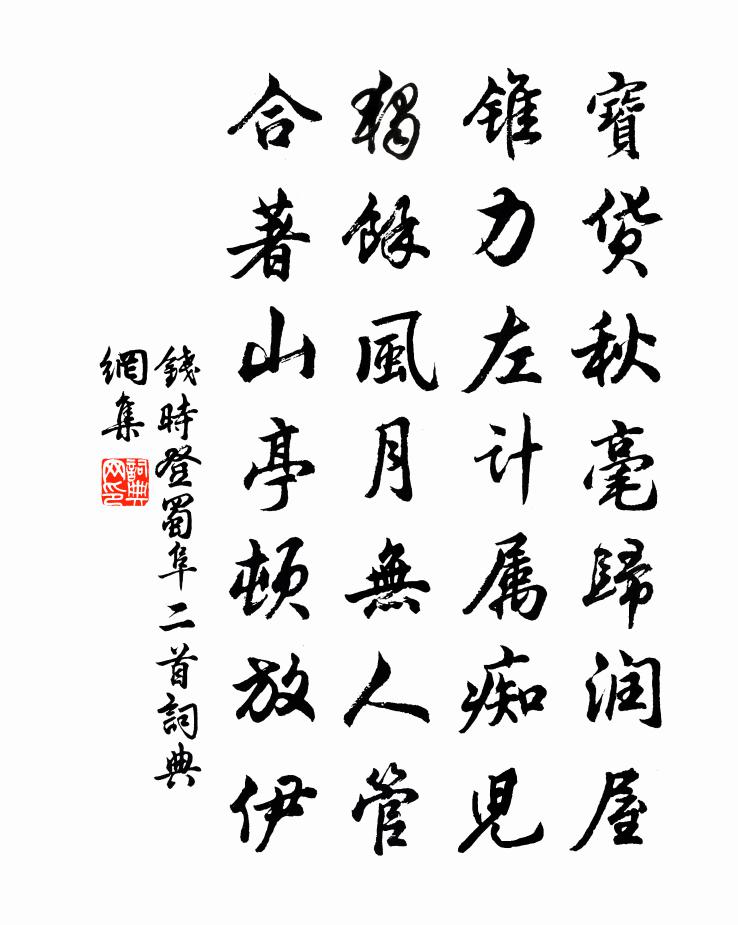 寶貨秋毫歸润屋
錐力左计属痴児
獨餘風月無人管
合著山亭頓放伊
錢時登蜀阜二首詞典
網集
詞典网印